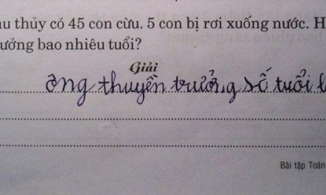 àu thủy có 45 con cừu. 5 con bị rơi xuống nước. H
ưởng bao nhiêu tuổi?
Giải
ông thuyền trưởng số tuổi l
Bài tập Toán